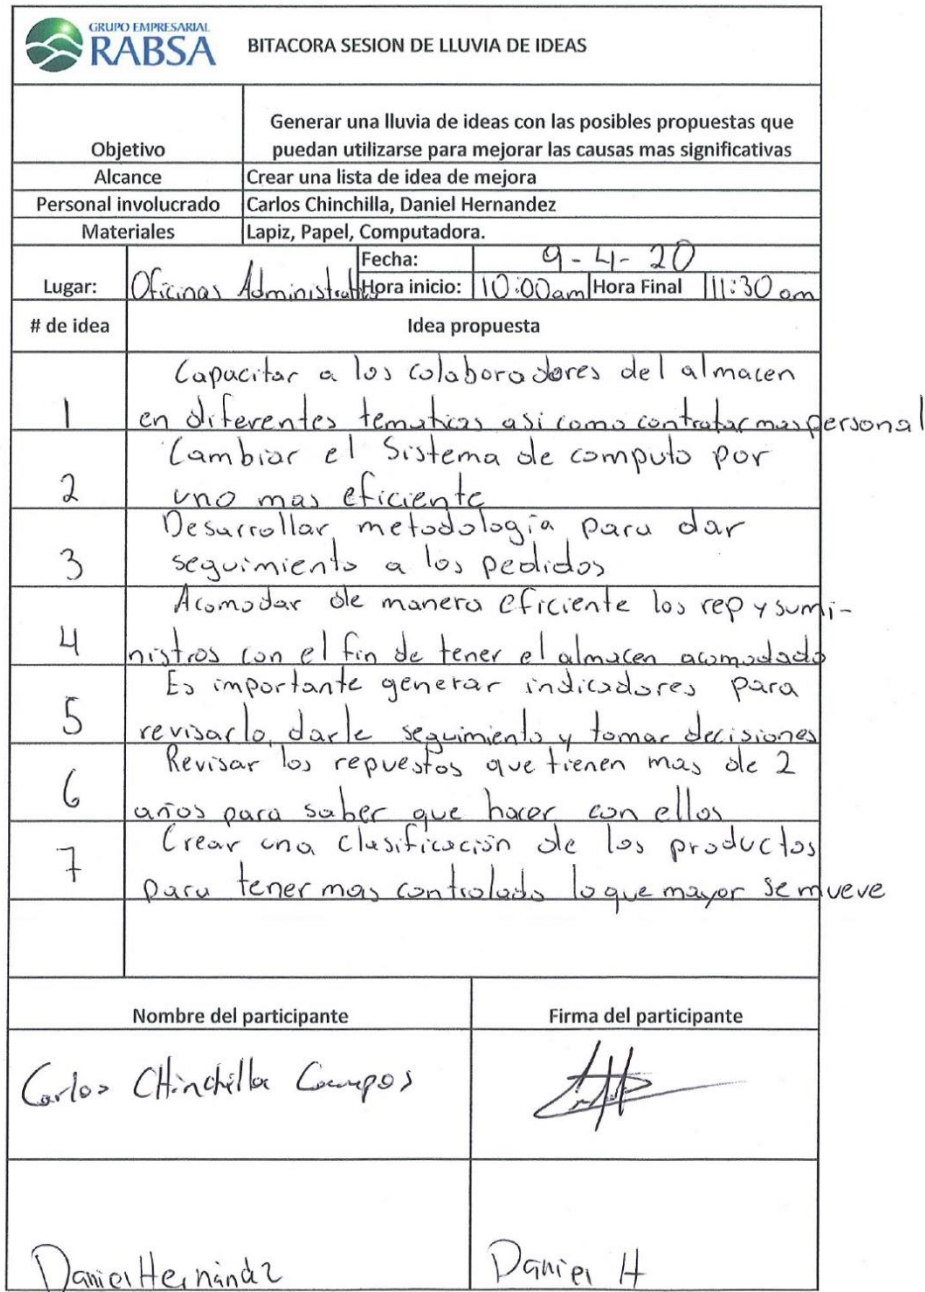 GRUPO EMPRESARIAL
RABSA
BITACORA SESION DE LLUVIA DE IDEAS
Objetivo
Generar una lluvia de ideas con las posibles propuestas que
puedan utilizarse para mejorar las causas mas significativas
Alcance
Crear una lista de idea de mejora
Personal involucrado
Carlos Chinchilla, Daniel Hernandez
Materiales
Lapiz, Papel, Computadora.
Lugar:
Oficinas Administrativas
Fecha:
9-4-20
Hora inicio:
10:00am
Hora Final
11:30 am
# de idea
Idea propuesta
1
Capacitar a los colaboradores del almacen
en diferentes tematicas asi como contratar mas personal
2
Cambiar el Sistema de computo por
uno mas eficiente
3
Desarrollar metodología para dar
seguimiento a los pedidos
4
Acomodar de manera eficiente los rep y sumi-
nistros con el fin de tener el almacen acomodado
5
Es importante generar indicadores para
revisarlo, darle seguimiento y tomar decisiones
6
Revisar los repuestos que tienen mas de 2
años para saber que hacer con ellos
7
Crear una clasificación de los productos
para tener mas controlado lo que mayor se mueve
Nombre del participante
Firma del participante
Carlos Chinchilla Campos
Daniel Hernández
Daniel H